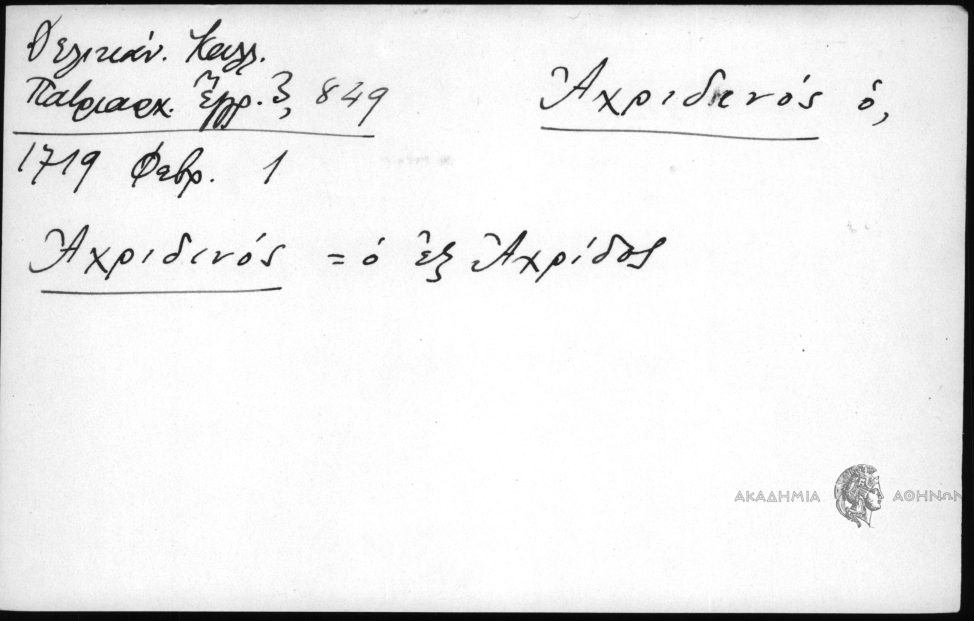 Δελικάν. Καλλ.
Πατριαρχ. Ἔγγρ. 3, 849
Ἀχριδινός ὁ,
1719 Φεβρ. 1
Ἀχριδινός = ὁ ἐξ Ἀχρίδος
ΑΚΑΔΗΜΙΑ ΑΘΗΝΩΝ